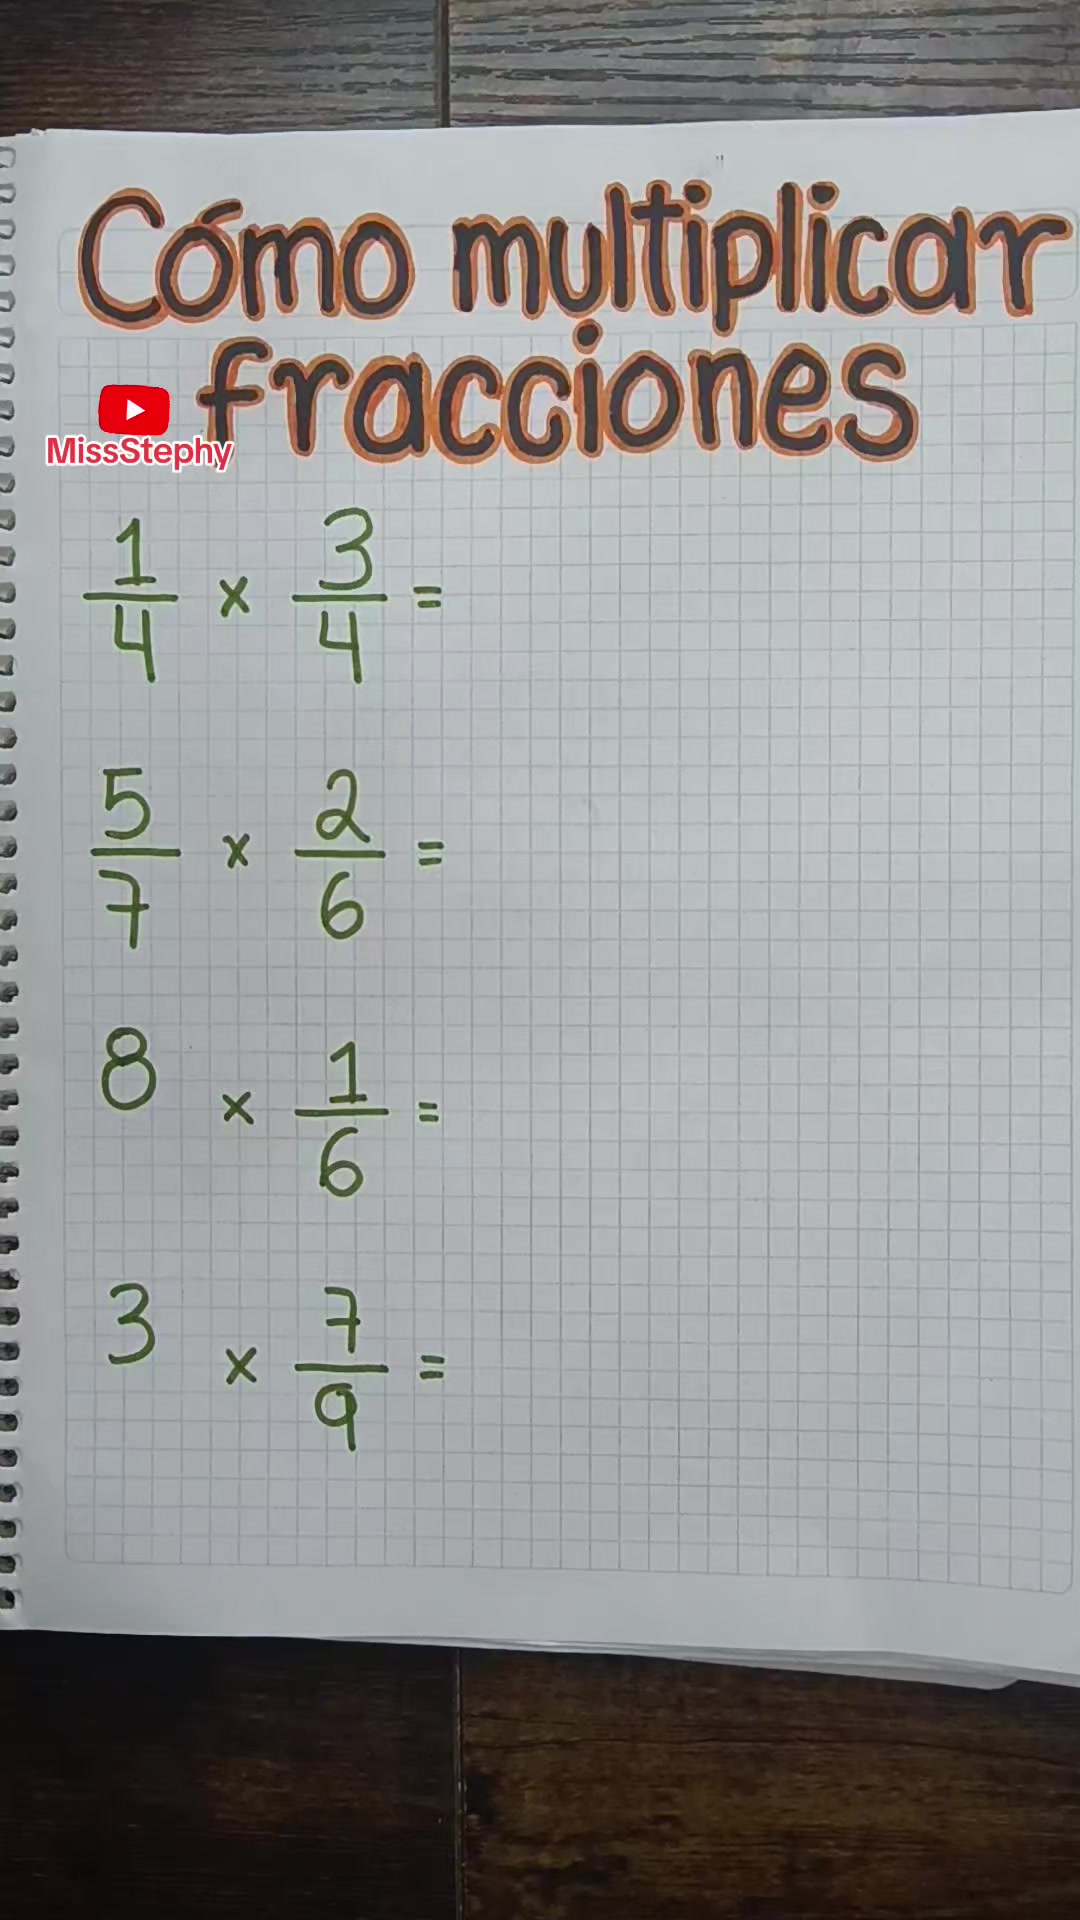 Cómo multiplicar
fracciones
MissStephy
1/4 x 3/4 =
5/7 x 2/6 =
8 x 1/6 =
3 x 7/9 =